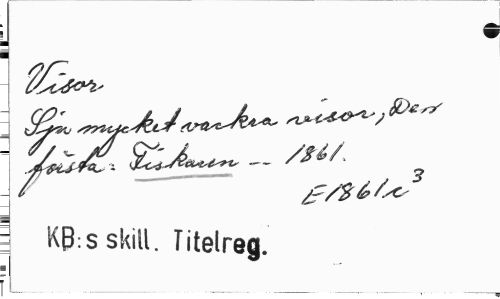 Visor
Sju mycket vackra visor, Den
första: Fiskaren -- 1861.
E1861c³
KB:s skill. Titelreg.